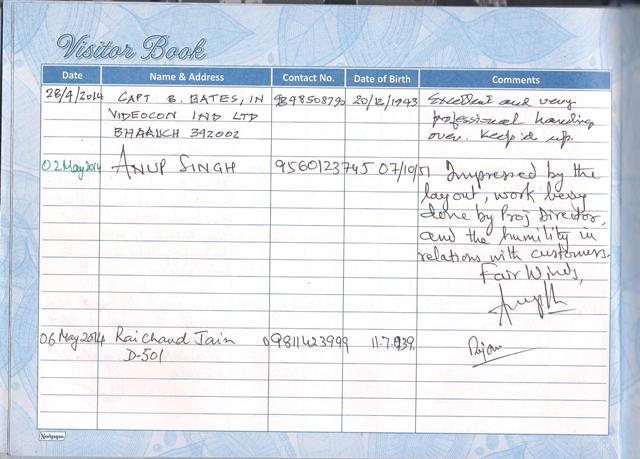 Visitor Book
Date Name & Address Contact No. Date of Birth Comments
28/4/2014 CAPT B. BATES, IN 9848508790 20/12/1943 Excellent and very
VIDEOCON IND LTD professional handing
BHARUCH 392002 over. Keep it up.
02 May 2014 ANUP SINGH 9560123745 07/10/51 Impressed by the
layout, work being
done by Proj Director,
and the humility in
relations with customers.
Fair Winds,
06 May 2014 Raichand Jain 09811423999 11.7.1939.
D-501